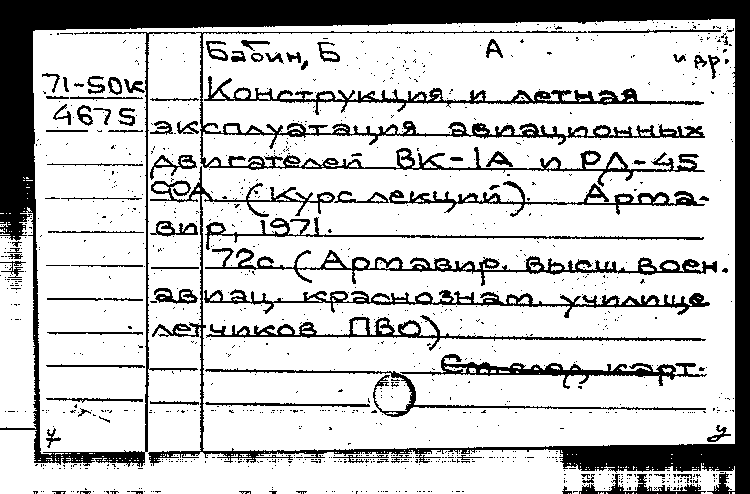 Бабин, Б А и др.
71-50к Конструкция и летная
4675 эксплуатация авиационных
двигателей ВК-1А и РД-45
ФА. (Курс лекций). Арма-
вир, 1971.
72с. (Армавир. высш. воен.
авиац. краснознам. училище
летчиков ПВО).
См след. карт.
у